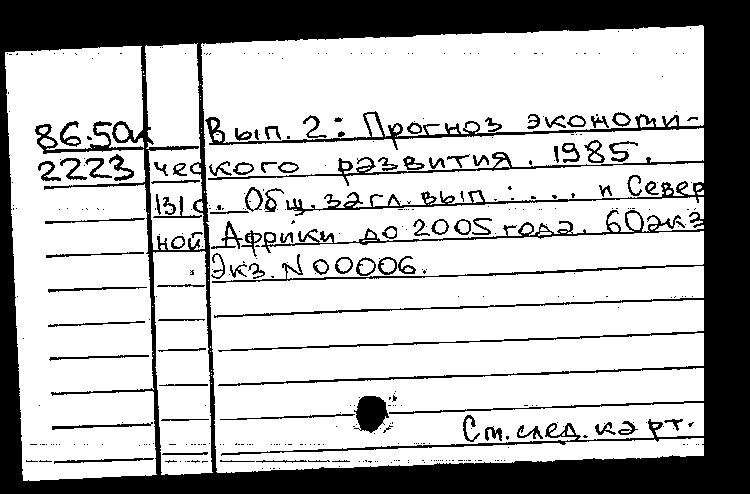 86.50к Вып. 2: Прогноз экономи-
2223 ческого развития. 1985.
131с. Общ. загл. вып.: ... и Север
ной Африки до 2005 года. 60экз
Экз. N 00006.
См. след. карт.